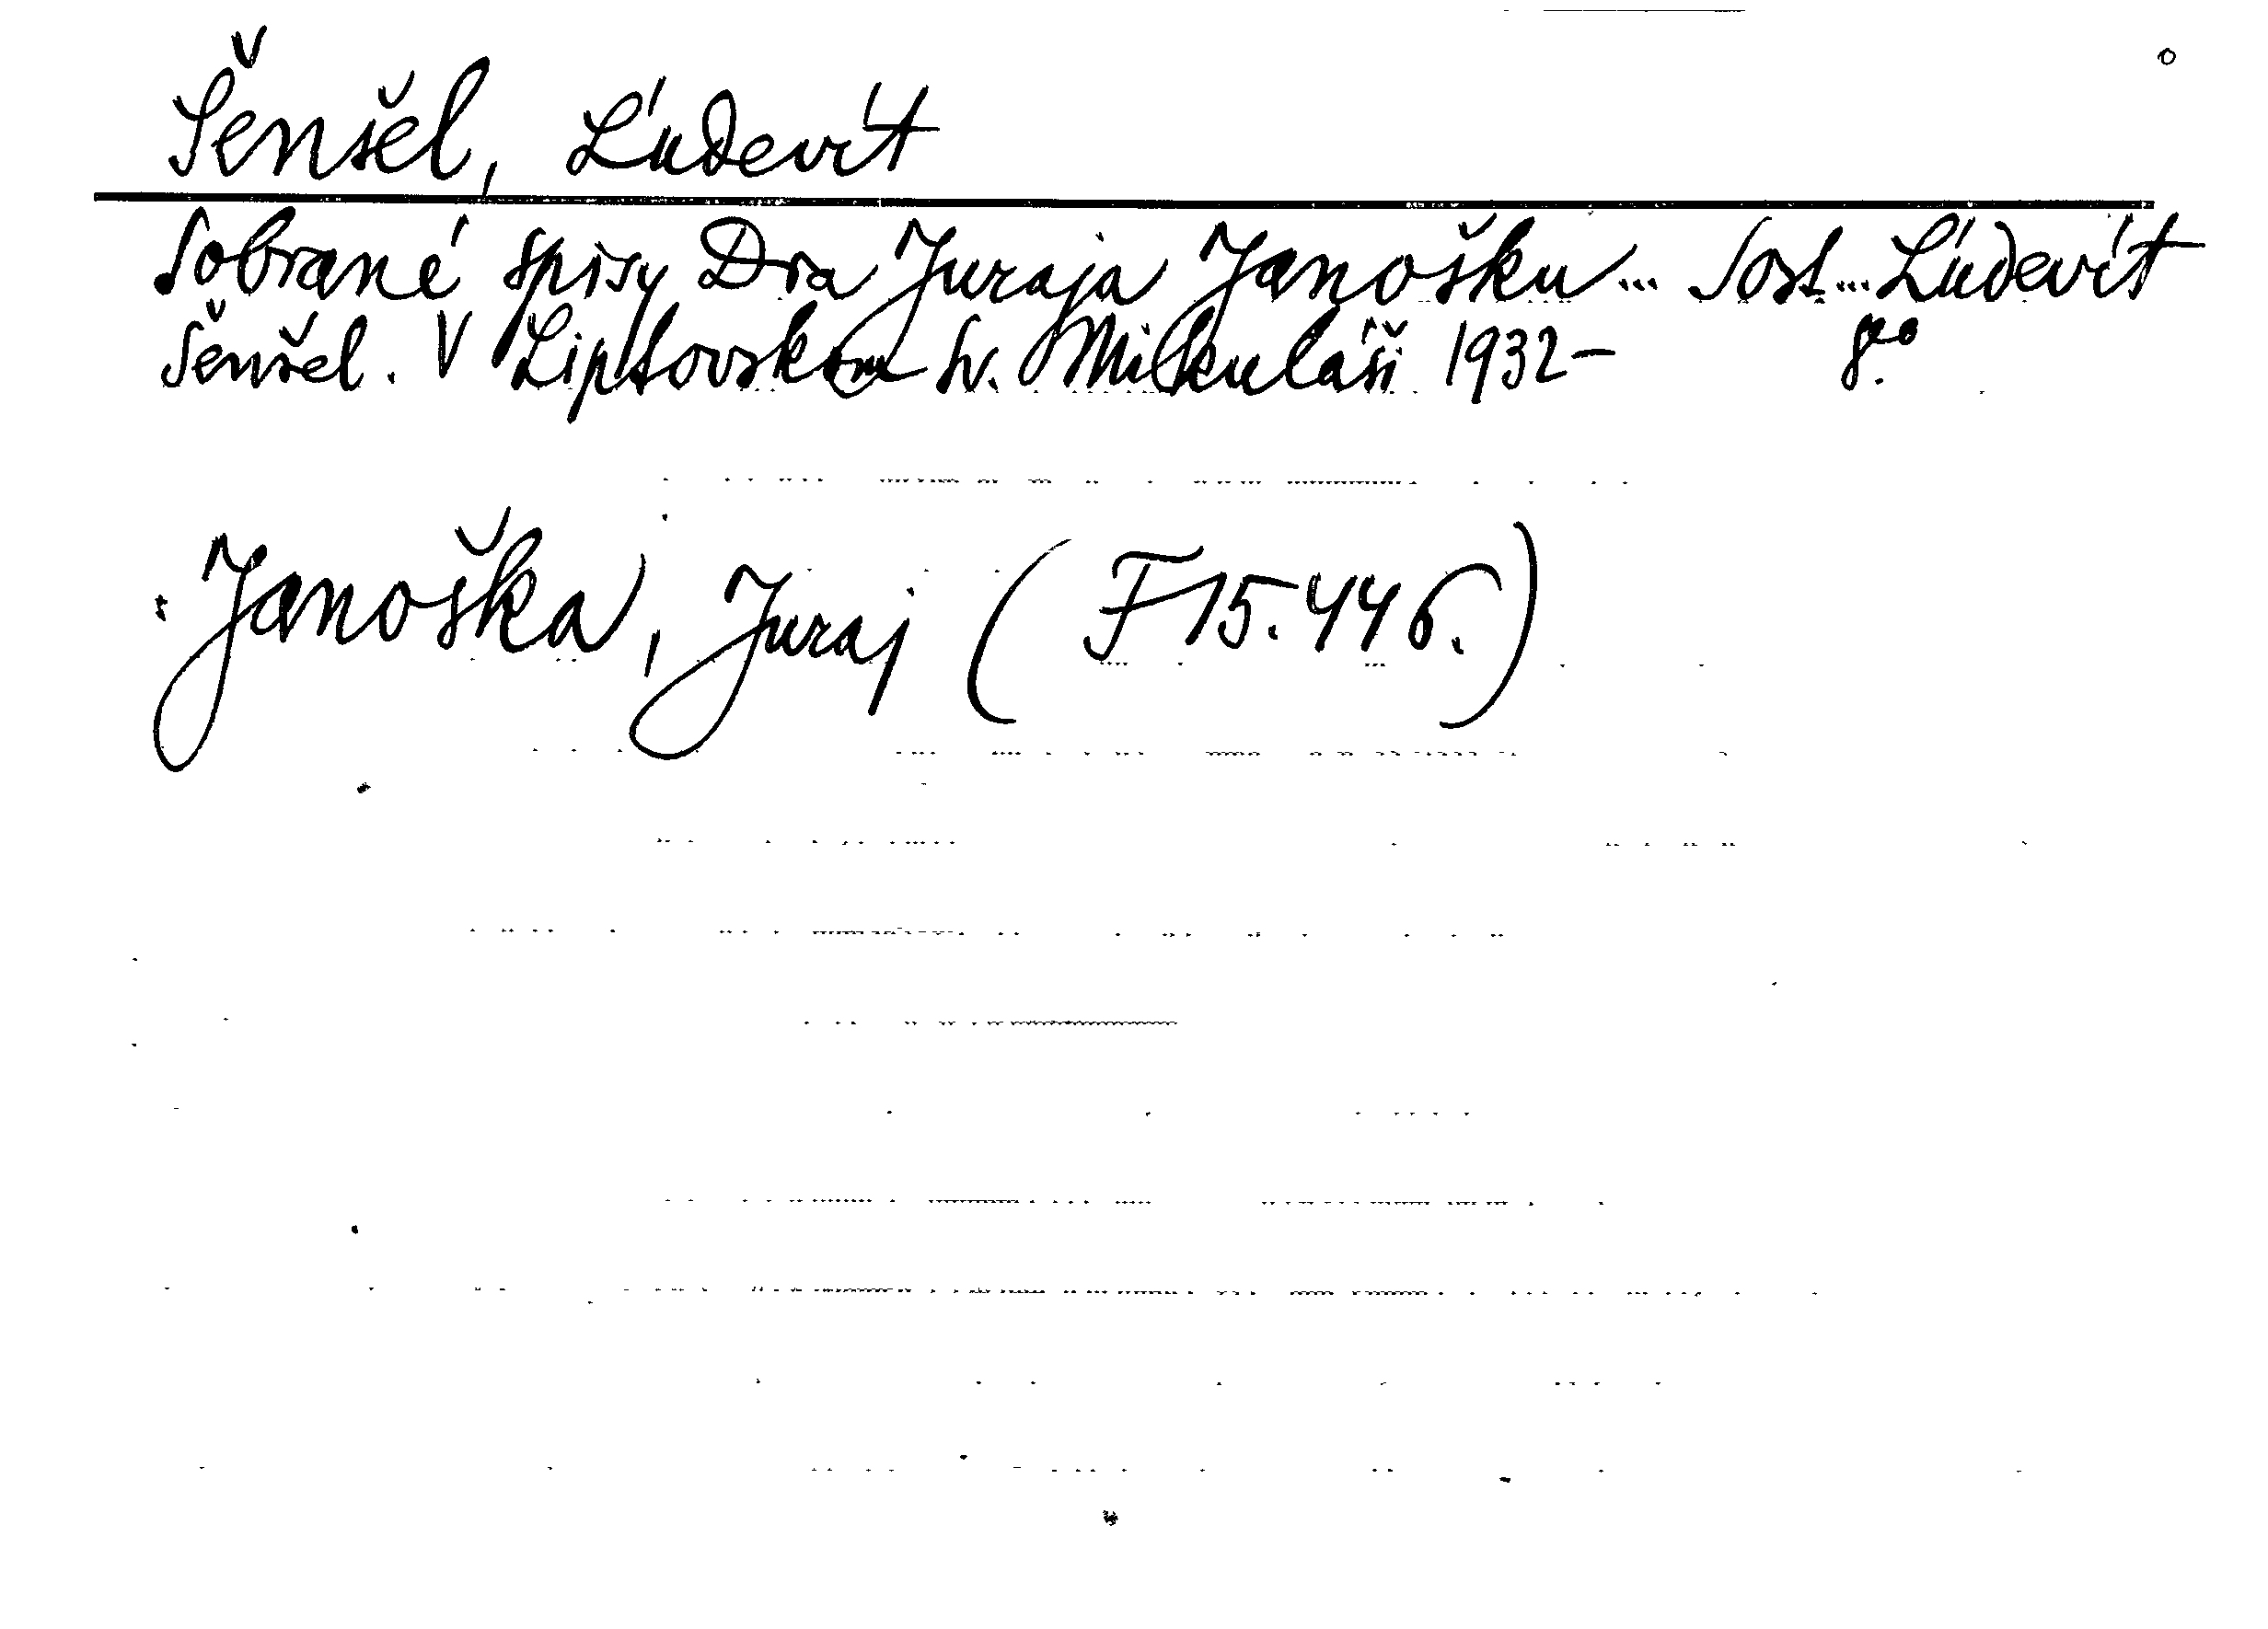 Šenšel, Ľudevít
Sobrané spisy Dra Juraja Janošku... Sost... Ľudevít
Šenšel. V Liptovskom Sv. Mikuláši 1932- 8.º
Janoška, Juraj (F 15.446.)